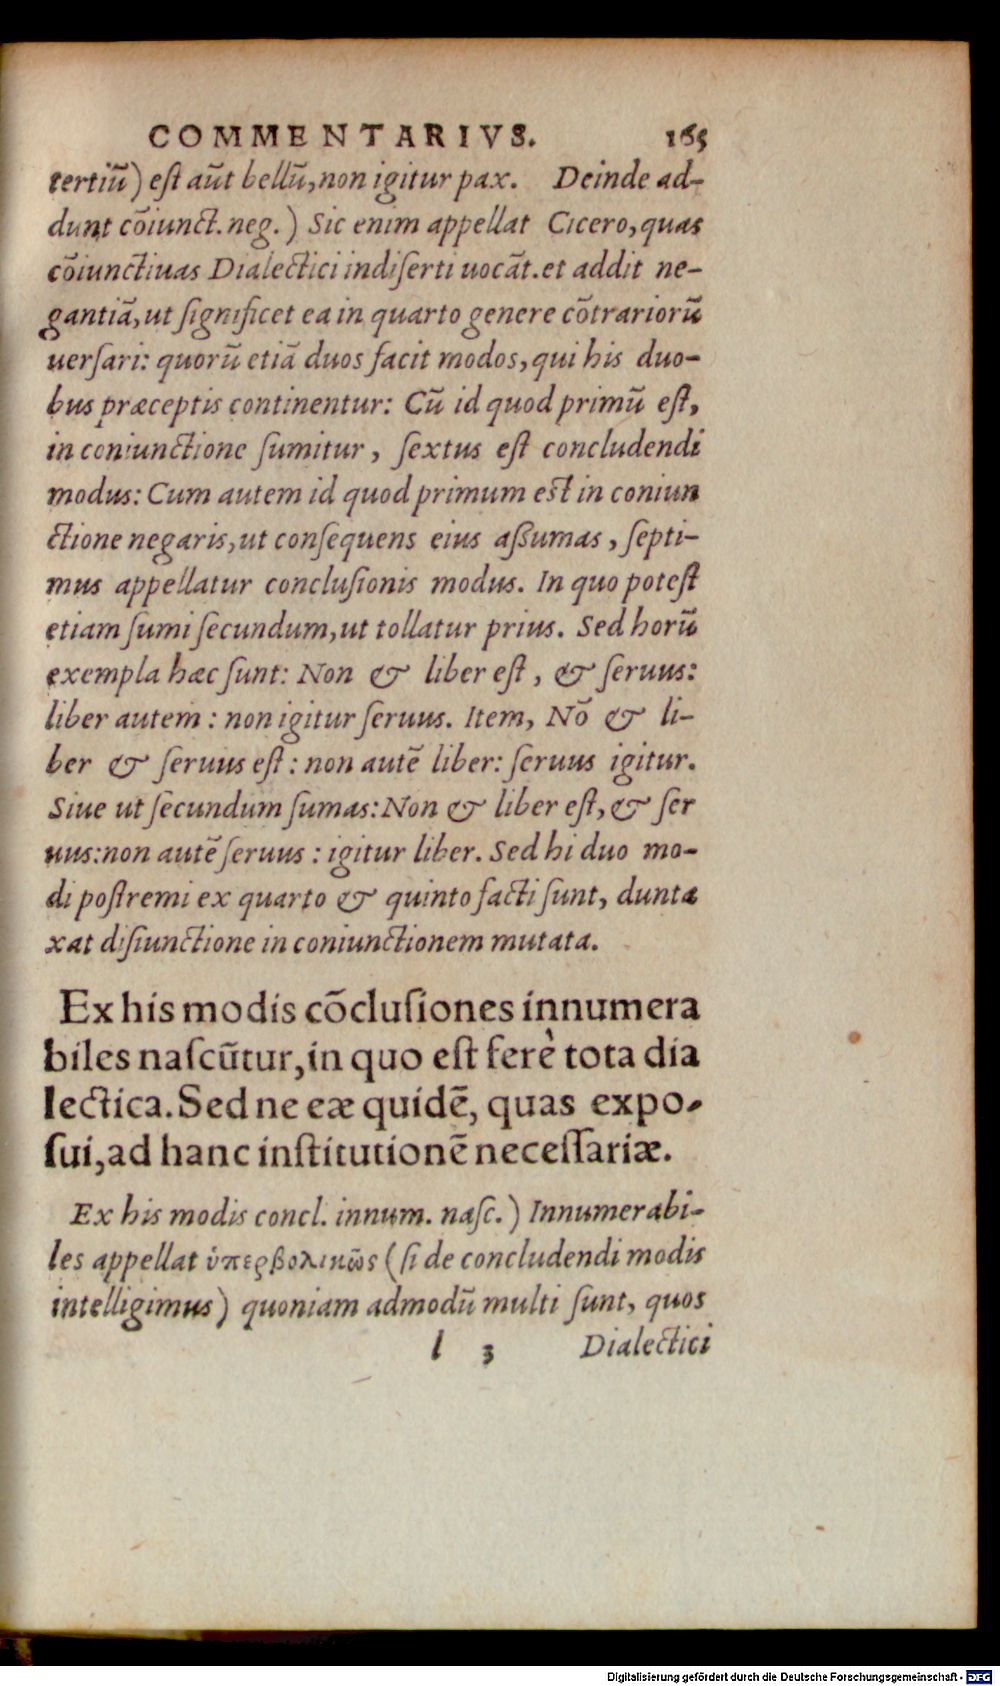 COMMENTARIVS. 165
tertiū) eſt aūt bellū, non igitur pax. Deinde ad-
dunt cōiunct. neg.) Sic enim appellat Cicero, quas
cōiunctiuas Dialectici indiſerti uocāt. et addit ne-
gantiā, ut ſignificet ea in quarto genere cōtrariorū
uerſari: quorū etiā duos facit modos, qui his duo-
bus præceptis continentur: Cū id quod primū eſt,
in coniunctione ſumitur, ſextus eſt concludendi
modus: Cum autem id quod primum eſt in coniun
ctione negaris, ut conſequens eius aſſumas, ſepti-
mus appellatur concluſionis modus. In quo poteſt
etiam ſumi ſecundum, ut tollatur prius. Sed horū
exempla hæc ſunt: Non & liber eſt, & ſeruus:
liber autem: non igitur ſeruus. Item, Nō & li-
ber & ſeruus eſt: non autē liber: ſeruus igitur.
Siue ut ſecundum ſumas: Non & liber eſt, & ſer
uus: non autē ſeruus: igitur liber. Sed hi duo mo-
di poſtremi ex quarto & quinto facti ſunt, dunta
xat diſiunctione in coniunctionem mutata.
Ex his modis cōcluſiones innumera
biles naſcūtur, in quo eſt ferè tota dia
lectica. Sed ne eæ quidē, quas expo-
ſui, ad hanc inſtitutionē neceſſariæ.
Ex his modis concl. innum. naſc.) Innumerabi-
les appellat ὑπερβολικῶς (ſi de concludendi modis
intelligimus) quoniam admodū multi ſunt, quos
l 3 Dialectici
Digitalisierung gefördert durch die Deutsche Forschungsgemeinschaft - DFG